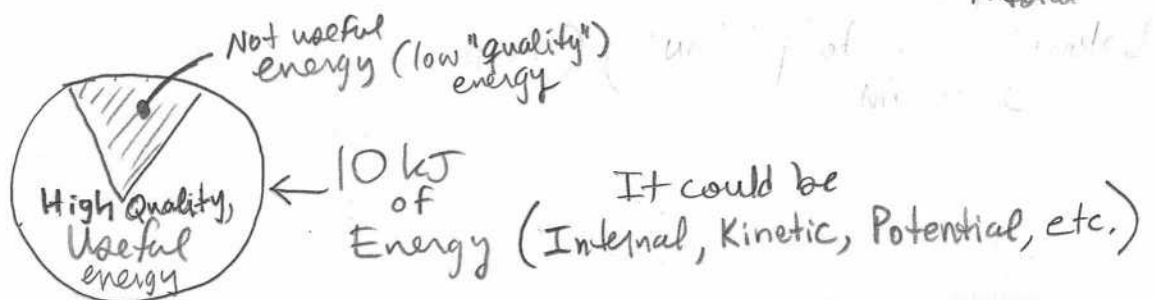 Not useful
energy (low "quality")
energy
High Quality,
Useful
energy
10 kJ
of
Energy
It could be
(Internal, Kinetic, Potential, etc.)